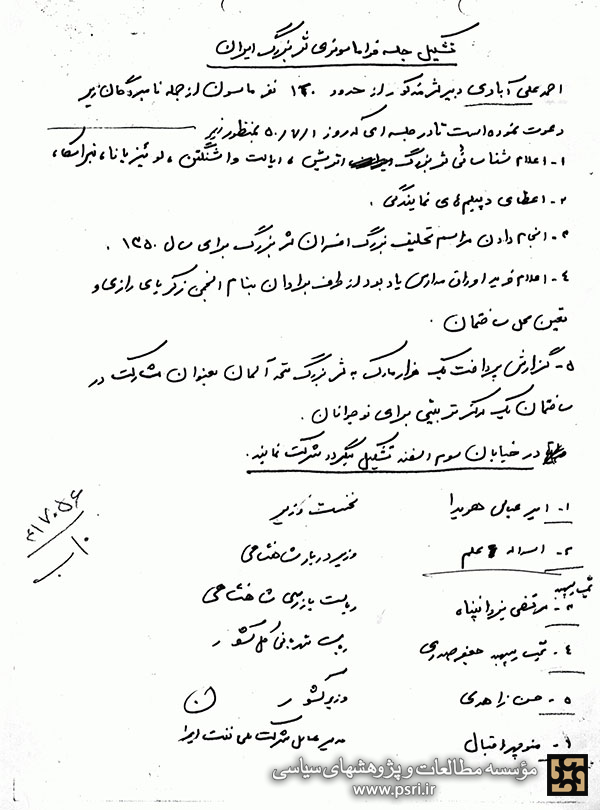 تشکیل جلسه فراماسونری لژ بزرگ ایران
احمد علی آبادی دبیر لژ مذکور از حدود ۱۳۰ نفر ماسون از جمله نامبردگان زیر
دعوت نموده است تا در جلسه ای که روز ۵۰/۷/۱ بمنظور زیر
۱- اعلام شناسائی لژ بزرگ اتریش ، ایالت واشنگتن ، لوئیزیانا ، نبراسکا ،
۲- اعطای دیپلم های نمایندگی .
۳- انجام دادن مراسم تحلیف بزرگ افسران لژ بزرگ برای سال ۱۳۵۰ .
۴- اعلام اوراق مداری یادبود از طرف برادران بنام انجمن زکریای رازی و
تعیین محل ساختمان .
۵- گزارش پرداخت یک هزار مارک به لژ بزرگ متحد آلمان بعنوان مشارکت در
ساختمان یک مرکز تربیتی برای نوجوانان .
در خیابان سوم اسفند تشکیل میگردد شرکت نمایند .
۱- امیر عباس هویدا نخست وزیر
۲- اسداله علم وزیر دربار شاهنشاهی
۳- سپهبد مرتضی یزدانپناه ریاست بازرسی شاهنشاهی
۴- سپهبد جعفرقلی صدری رییس شهربانی کل کشور
۵- حسن زاهدی وزیر کشور
۶- منوچهر اقبال مدیر عامل شرکت ملی نفت ایران
۴۱۷۰۵۶
۱۰ ب
مؤسسه مطالعات و پژوهشهای سیاسی
www.psri.ir